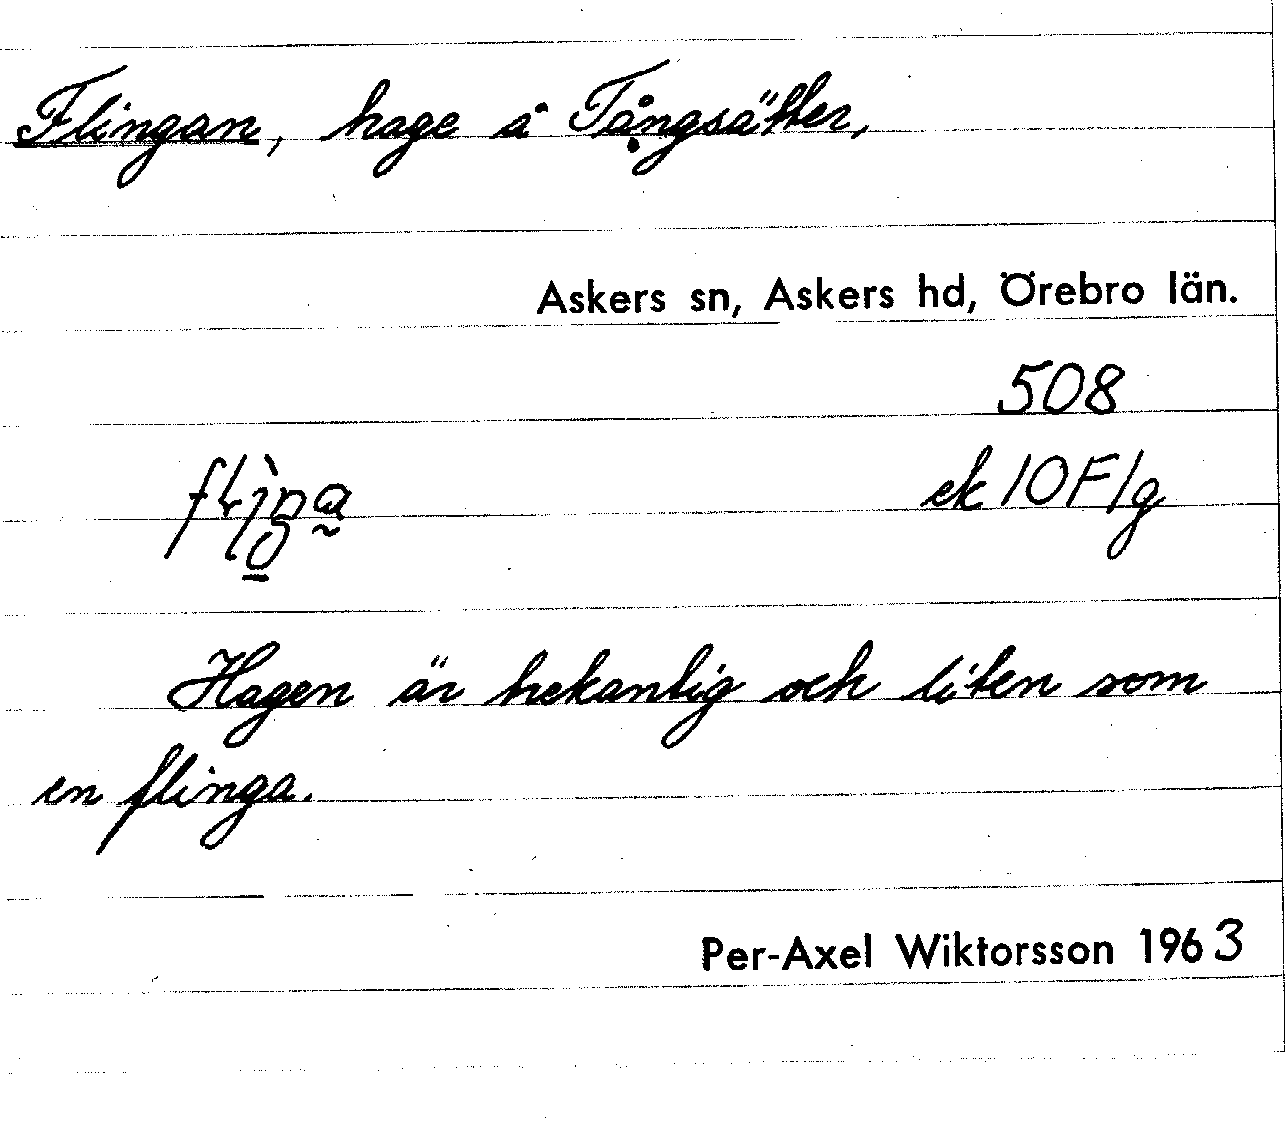 Flingan, hage å Tångsätter,
Askers sn, Askers hd, Örebro län.
508
ek 10F1g
Hagen är trekantig och liten som
en flinga.
Per-Axel Wiktorsson 1963